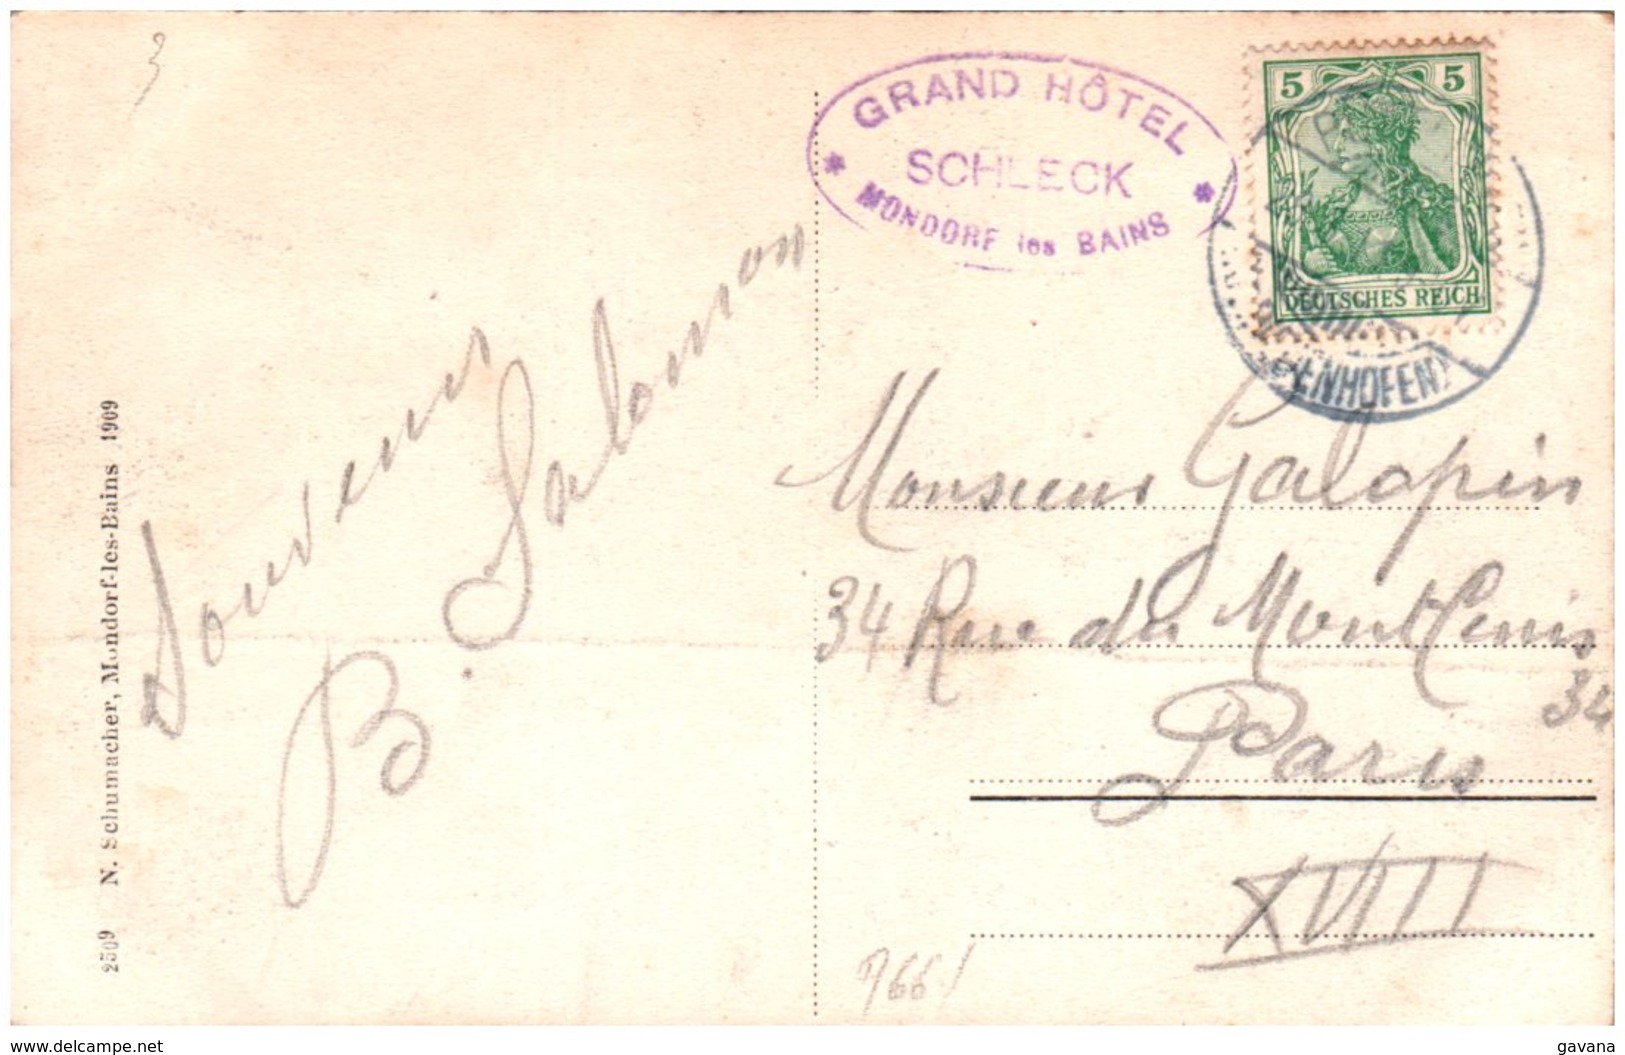 3
GRAND HÔTEL
SCHLECK
MONDORF les BAINS
5 5
DEUTSCHES REICH
ENHOFEN
Souvenir
B. Salomon
Monsieur Galopin
34 Rue du Mont Cenis
34
Paris
XVIII
7661
2509 N. Schumacher, Mondorf-les-Bains 1909
www.delcampe.net
gavana